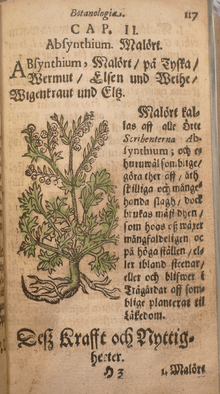 Botanologiæ. 117
CAP. II.
Absynthium. Malört.
ABsynthium, Malört / på Tyska /
Wermut / Elsen und Weihe /
Wigentraut und Eltz.
Malört kal-
las aff alle Örte
Scribenterna Ab-
synthium; och eh
huruwäl som bitge/
göra ther aff / åth
skilliga och månge-
handa slagh / doch
brukas mäst dhen /
som hoos oß wäxer
mångfaldeligen oc
på höga ställen / el-
ler ibland steenar/
eller och blifwer i
Trägårdar aff som-
blige planterat til
Läkedom.
Deß Krafft och Nyttig-
heeter.
H 3 1. Malört